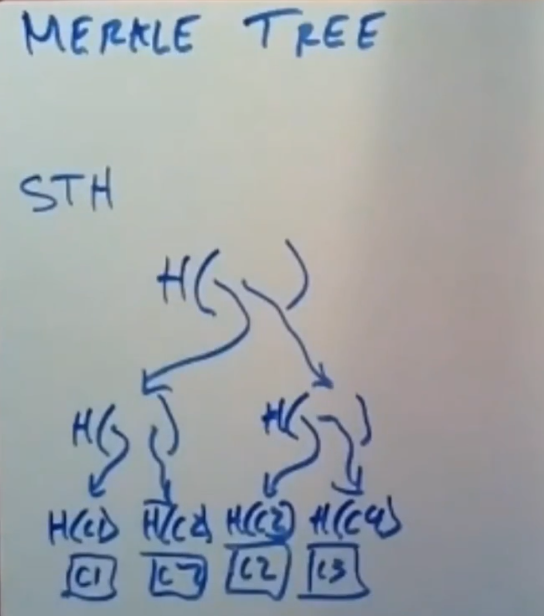 MERKLE TREE
STH
H( )
H( ) H( )
H(C1) H(C2) H(C3) H(C4)
C1 C2 C3